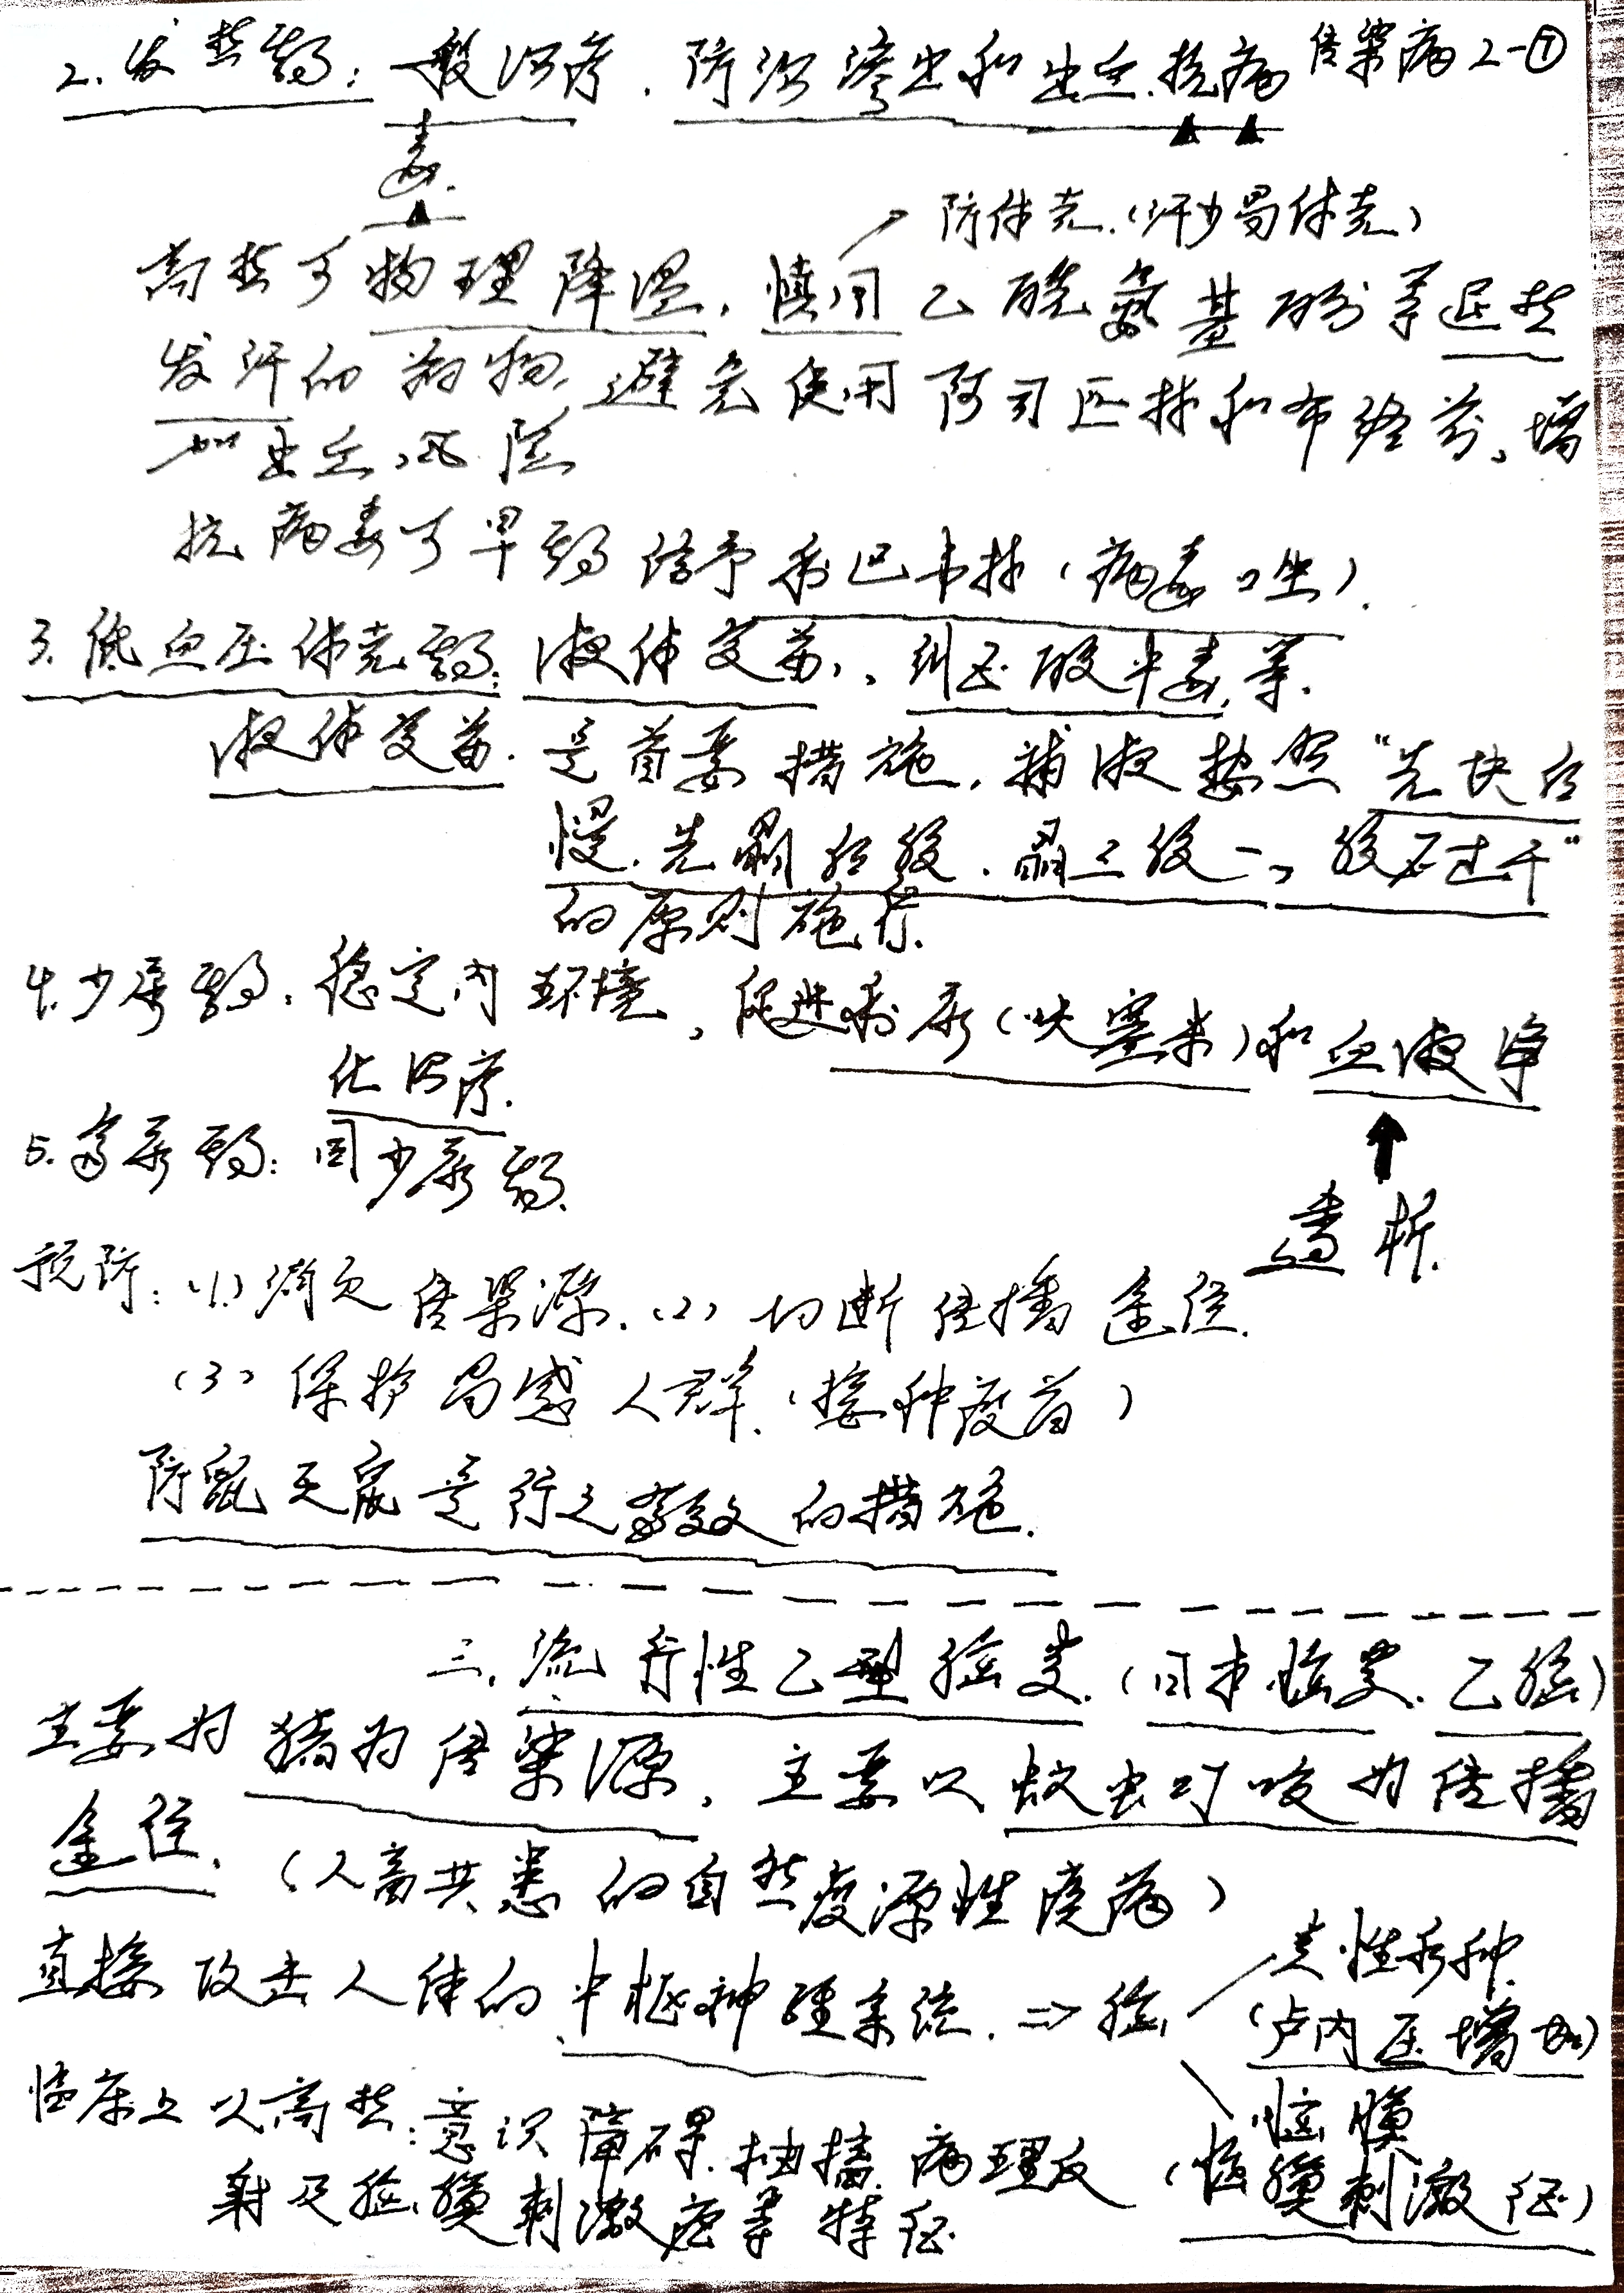 传染病2-⑦
2.发热期:一般治疗.防治渗出和出血.抗病
毒.
防休克.(汗少易休克)
高热可物理降温,慎用乙酰氨基酚等退热
发汗的药物,避免使用阿司匹林和布洛芬,增
加出血风险
抗病毒可早期给予利巴韦林(病毒唑).
3.低血压休克期:液体复苏,、纠正酸中毒,等.
液体复苏.是首要措施,补液按照“先快后
慢.先晶后胶.晶三胶一,胶不过千”
的原则施行.
4.少尿期:稳定内环境,促进利尿(呋塞米)和血液净
化治疗.
5.多尿期:同少尿期.
透析.
预防:(1)消灭传染源.(2)切断传播途径.
(3)保护易感人群.(接种疫苗)
防鼠灭鼠是行之有效的措施.
三.流行性乙型脑炎.(日本脑炎.乙脑)
主要为猪为传染源,主要以蚊虫叮咬为传播
途径.(人畜共患的自然疫源性疾病)
直接攻击人体的中枢神经系统.⇒脑
炎性水肿.
(颅内压增加)
脑膜
(脑膜刺激征)
临床上以高热:意识障碍.抽搐.病理反
射及脑膜刺激症等特征.